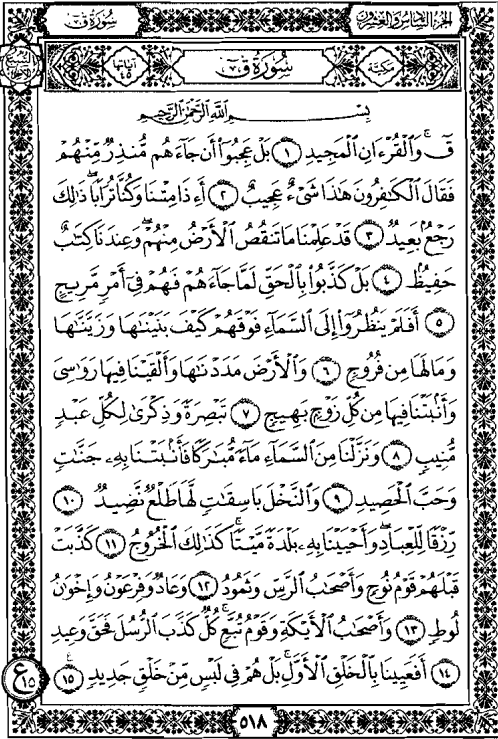 الجزء السادس والعشرون
سورة ق
مكية
سورة ق
آياتها ٤٥
بِسْمِ اللَّهِ الرَّحْمَٰنِ الرَّحِيمِ
قٓ ۚ وَالْقُرْءَانِ الْمَجِيدِ ١ بَلْ عَجِبُوٓا۟ أَن جَآءَهُم مُّنذِرٌ مِّنْهُمْ
فَقَالَ الْكَٰفِرُونَ هَٰذَا شَىْءٌ عَجِيبٌ ٢ أَءِذَا مِتْنَا وَكُنَّا تُرَابًا ۖ ذَٰلِكَ
رَجْعٌۢ بَعِيدٌ ٣ قَدْ عَلِمْنَا مَا تَنقُصُ الْأَرْضُ مِنْهُمْ ۖ وَعِندَنَا كِتَٰبٌ
حَفِيظٌۢ ٤ بَلْ كَذَّبُوا۟ بِالْحَقِّ لَمَّا جَآءَهُمْ فَهُمْ فِىٓ أَمْرٍ مَّرِيجٍ
٥ أَفَلَمْ يَنظُرُوٓا۟ إِلَى السَّمَآءِ فَوْقَهُمْ كَيْفَ بَنَيْنَٰهَا وَزَيَّنَّٰهَا
وَمَا لَهَا مِن فُرُوجٍ ٦ وَالْأَرْضَ مَدَدْنَٰهَا وَأَلْقَيْنَا فِيهَا رَوَٰسِىَ
وَأَنۢبَتْنَا فِيهَا مِن كُلِّ زَوْجٍۭ بَهِيجٍ ٧ تَبْصِرَةً وَذِكْرَىٰ لِكُلِّ عَبْدٍ
مُّنِيبٍ ٨ وَنَزَّلْنَا مِنَ السَّمَآءِ مَآءً مُّبَٰرَكًا فَأَنۢبَتْنَا بِهِۦ جَنَّٰتٍ
وَحَبَّ الْحَصِيدِ ٩ وَالنَّخْلَ بَاسِقَٰتٍ لَّهَا طَلْعٌ نَّضِيدٌ ١٠
رِّزْقًا لِّلْعِبَادِ ۖ وَأَحْيَيْنَا بِهِۦ بَلْدَةً مَّيْتًا ۚ كَذَٰلِكَ الْخُرُوجُ ١١ كَذَّبَتْ
قَبْلَهُمْ قَوْمُ نُوحٍ وَأَصْحَٰبُ الرَّسِّ وَثَمُودُ ١٢ وَعَادٌ وَفِرْعَوْنُ وَإِخْوَٰنُ
لُوطٍ ١٣ وَأَصْحَٰبُ الْأَيْكَةِ وَقَوْمُ تُبَّعٍ ۚ كُلٌّ كَذَّبَ الرُّسُلَ فَحَقَّ وَعِيدِ
١٤ أَفَعَيِينَا بِالْخَلْقِ الْأَوَّلِ ۚ بَلْ هُمْ فِى لَبْسٍ مِّنْ خَلْقٍ جَدِيدٍ ١٥
ع ١٥
٥١٨